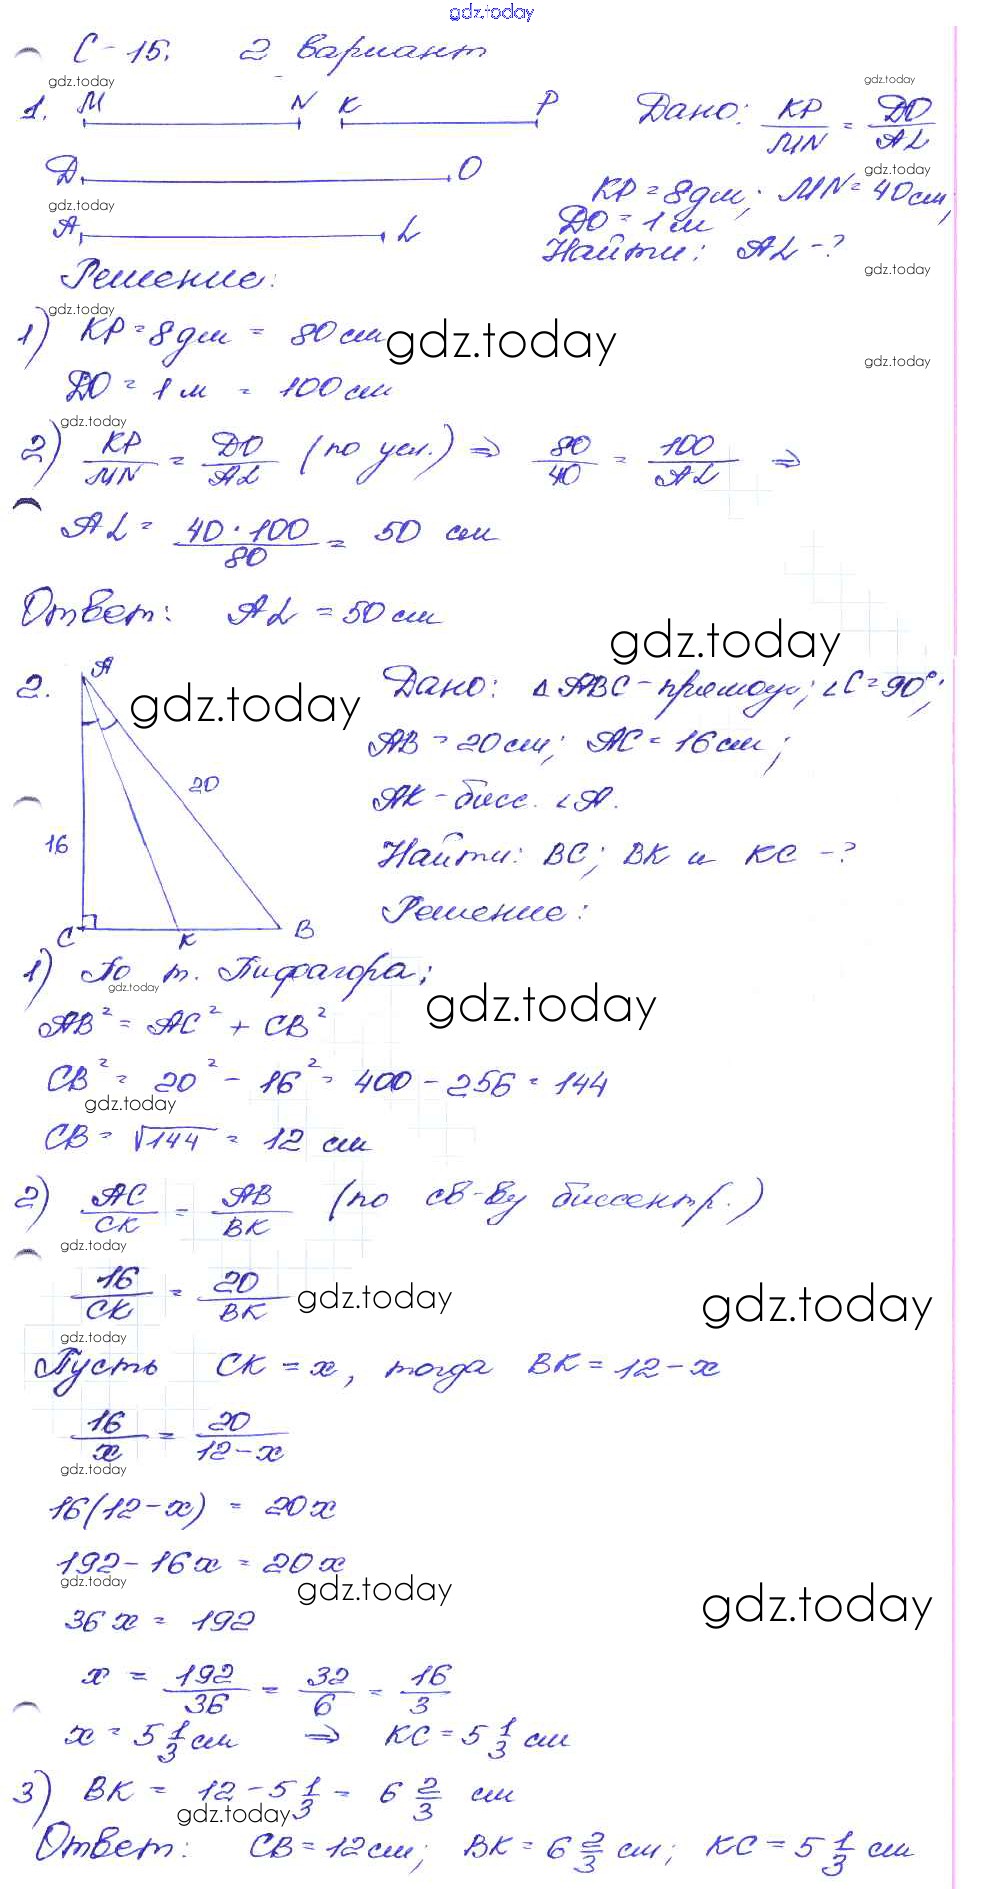 gdz.today
С-15. 2 вариант
gdz.today gdz.today
1. M N K P Дано: KP/MN = DO/AL
D O gdz.today
KP = 8дм; MN = 40см;
gdz.today
A L DO = 1м
Найти: AL - ?
Решение: gdz.today
gdz.today
1) KP = 8дм = 80см gdz.today
gdz.today
DO = 1м = 100см
gdz.today
2) KP/MN = DO/AL (по усл.) ⇒ 80/40 = 100/AL ⇒
AL = 40·100/80 = 50 см
Ответ: AL = 50см
gdz.today
2. A Дано: △ABC - прямоуг; ∠C = 90°;
gdz.today
AB = 20см; AC = 16см;
20
AK - бисс. ∠A.
16 Найти: BC; BK и KC - ?
Решение:
C K B
1) По т. Пифагора;
gdz.today gdz.today
AB² = AC² + CB²
CB² = 20² - 16² = 400 - 256 = 144
gdz.today
CB = √144 = 12 см
2) AC/CK = AB/BK (по св-ву биссектр.)
gdz.today
16/CK = 20/BK gdz.today gdz.today
gdz.today
Пусть CK = x, тогда BK = 12 - x
16/x = 20/12-x
gdz.today
16(12-x) = 20x
192 - 16x = 20x
gdz.today gdz.today gdz.today
36x = 192
x = 192/36 = 32/6 = 16/3
x = 5 1/3 см ⇒ KC = 5 1/3 см
3) BK = 12 - 5 1/3 = 6 2/3 см
gdz.today
Ответ: CB = 12см; BK = 6 2/3 см; KC = 5 1/3 см